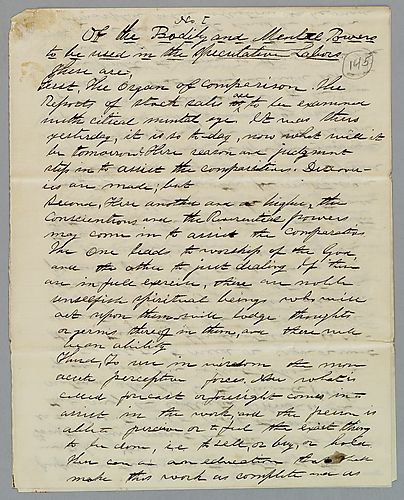 No I
Of the Bodily and Mental Powers
to be used in the Speculative Labors
145
These are,
First, The Organ of Comparison. The
Reports of stock sales are to be examined
with critical mental eye. It was thus
yesterday, it is so to-day, now what will it
be tomorrow? Here reason and judgment
step in to assist the comparatives. Discove-
ies are made, but
Second, Here another and a higher, the
Conscientious and the Reverential powers
may come in to assist the comparatives
The One leads to worship of the God,
and the other to just dealing. If these
are in full exercise, there are noble
unselfish Spiritual beings who will
act upon them will lodge thoughts
or germs thereof in them, and there will
be an ability
Third, To use in wisdom the more
acute perceptive forces. Now what is
called forecast or foresight comes in to
assist in the work, and the person is
able to perceive or to feel the exact thing
to be done, i.e. to sell, or buy, or hold.
There can be an education that shall
make this work as complete and as